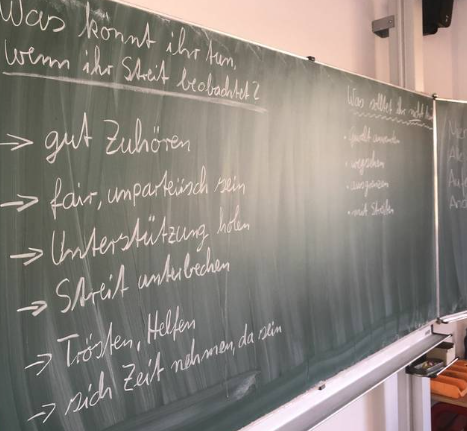 Was könnt ihr tun,
wenn ihr Streit beobachtet?
→ gut Zuhören
→ fair, unparteiisch sein
→ Unterstützung holen
→ Streit unterbrechen
→ Trösten, Helfen
→ sich Zeit nehmen, da sein
Was solltet ihr nicht tun
• wegsehen
• mit Streiten